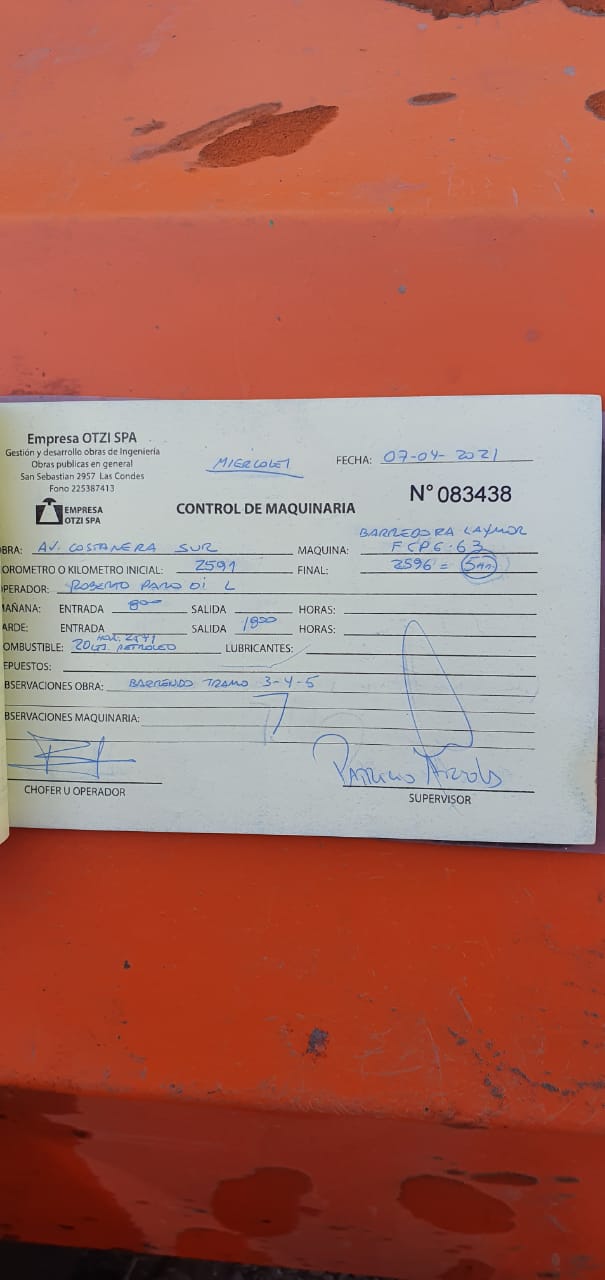 Empresa OTZI SPA
Gestión y desarrollo obras de Ingeniería
Obras publicas en general
San Sebastian 2957 Las Condes
Fono 225387413
EMPRESA
OTZI SPA
MIERCOLES
FECHA: 07-04-2021
N° 083438
CONTROL DE MAQUINARIA
BARREDORA LAYMOR
BRA: AV. COSTANERA SUR MAQUINA: FCPG-63
OROMETRO O KILOMETRO INICIAL: 2591 FINAL: 2596 =
PERADOR: ROBERTO PARODI L
AÑANA: ENTRADA 8:00 SALIDA HORAS:
ARDE: ENTRADA SALIDA 18:00 HORAS:
OMBUSTIBLE: 20 LTS. PETROLEO LUBRICANTES:
EPUESTOS:
BSERVACIONES OBRA: BARRENDO TRAMO 3-4-5
BSERVACIONES MAQUINARIA:
CHOFER U OPERADOR
PATRICIO
SUPERVISOR